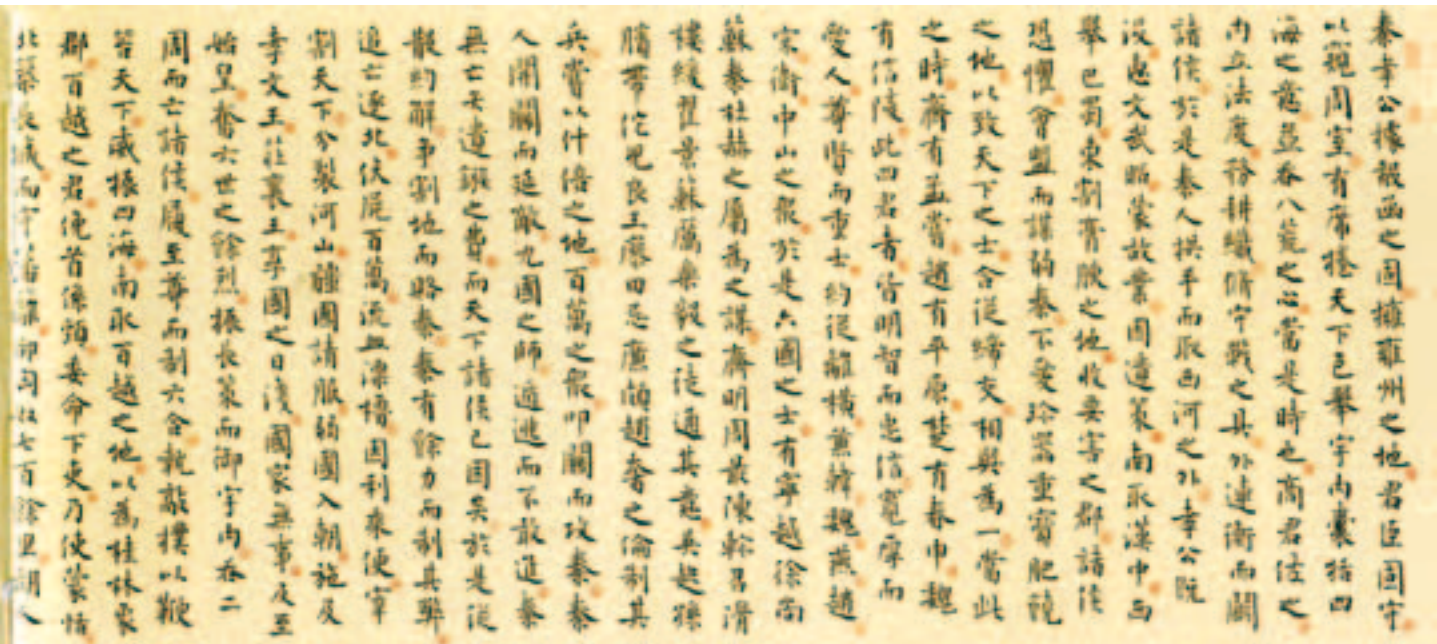 秦孝公據殽函之固擁雍州之地君臣固守
以窺周室有席捲天下包舉宇內囊括四
海之意並吞八荒之心當是時也商君佐之
內立法度務耕織脩守戰之具外連衡而鬭
諸侯於是秦人拱手而取西河之外孝公既
沒惠文武昭蒙故業因遺策南取漢中西
舉巴蜀東割膏腴之地收要害之郡諸侯
恐懼會盟而謀弱秦不愛珍器重寶肥饒
之地以致天下之士合從締交相與為一當此
之時齊有孟嘗趙有平原楚有春申魏
有信陵此四君者皆明智而忠信寬厚而
愛人尊賢而重士約從離橫兼韓魏燕趙
宋衛中山之眾於是六國之士有甯越徐尚
蘇秦杜赫之屬為之謀齊明周最陳軫召滑
樓緩翟景蘇厲樂毅之徒通其意吳起孫
臏帶佗兒良王廖田忌廉頗趙奢之倫制其
兵嘗以什倍之地百萬之眾叩關而攻秦秦
人開關而延敵九國之師遁逃而不敢進秦
無亡矢遺鏃之費而天下諸侯已困矣於是從
散約解爭割地而賂秦秦有餘力而制其弊
追亡逐北伏尸百萬流血漂櫓因利乘便宰
割天下分裂河山彊國請服弱國入朝施及
孝文王莊襄王享國之日淺國家無事及至
始皇奮六世之餘烈振長策而御宇內吞二
周而亡諸侯履至尊而制六合執敲撲以鞭
笞天下威振四海南取百越之地以為桂林象
郡百越之君俛首係頸委命下吏乃使蒙恬
北築長城而守藩籬卻匈奴七百餘里胡人